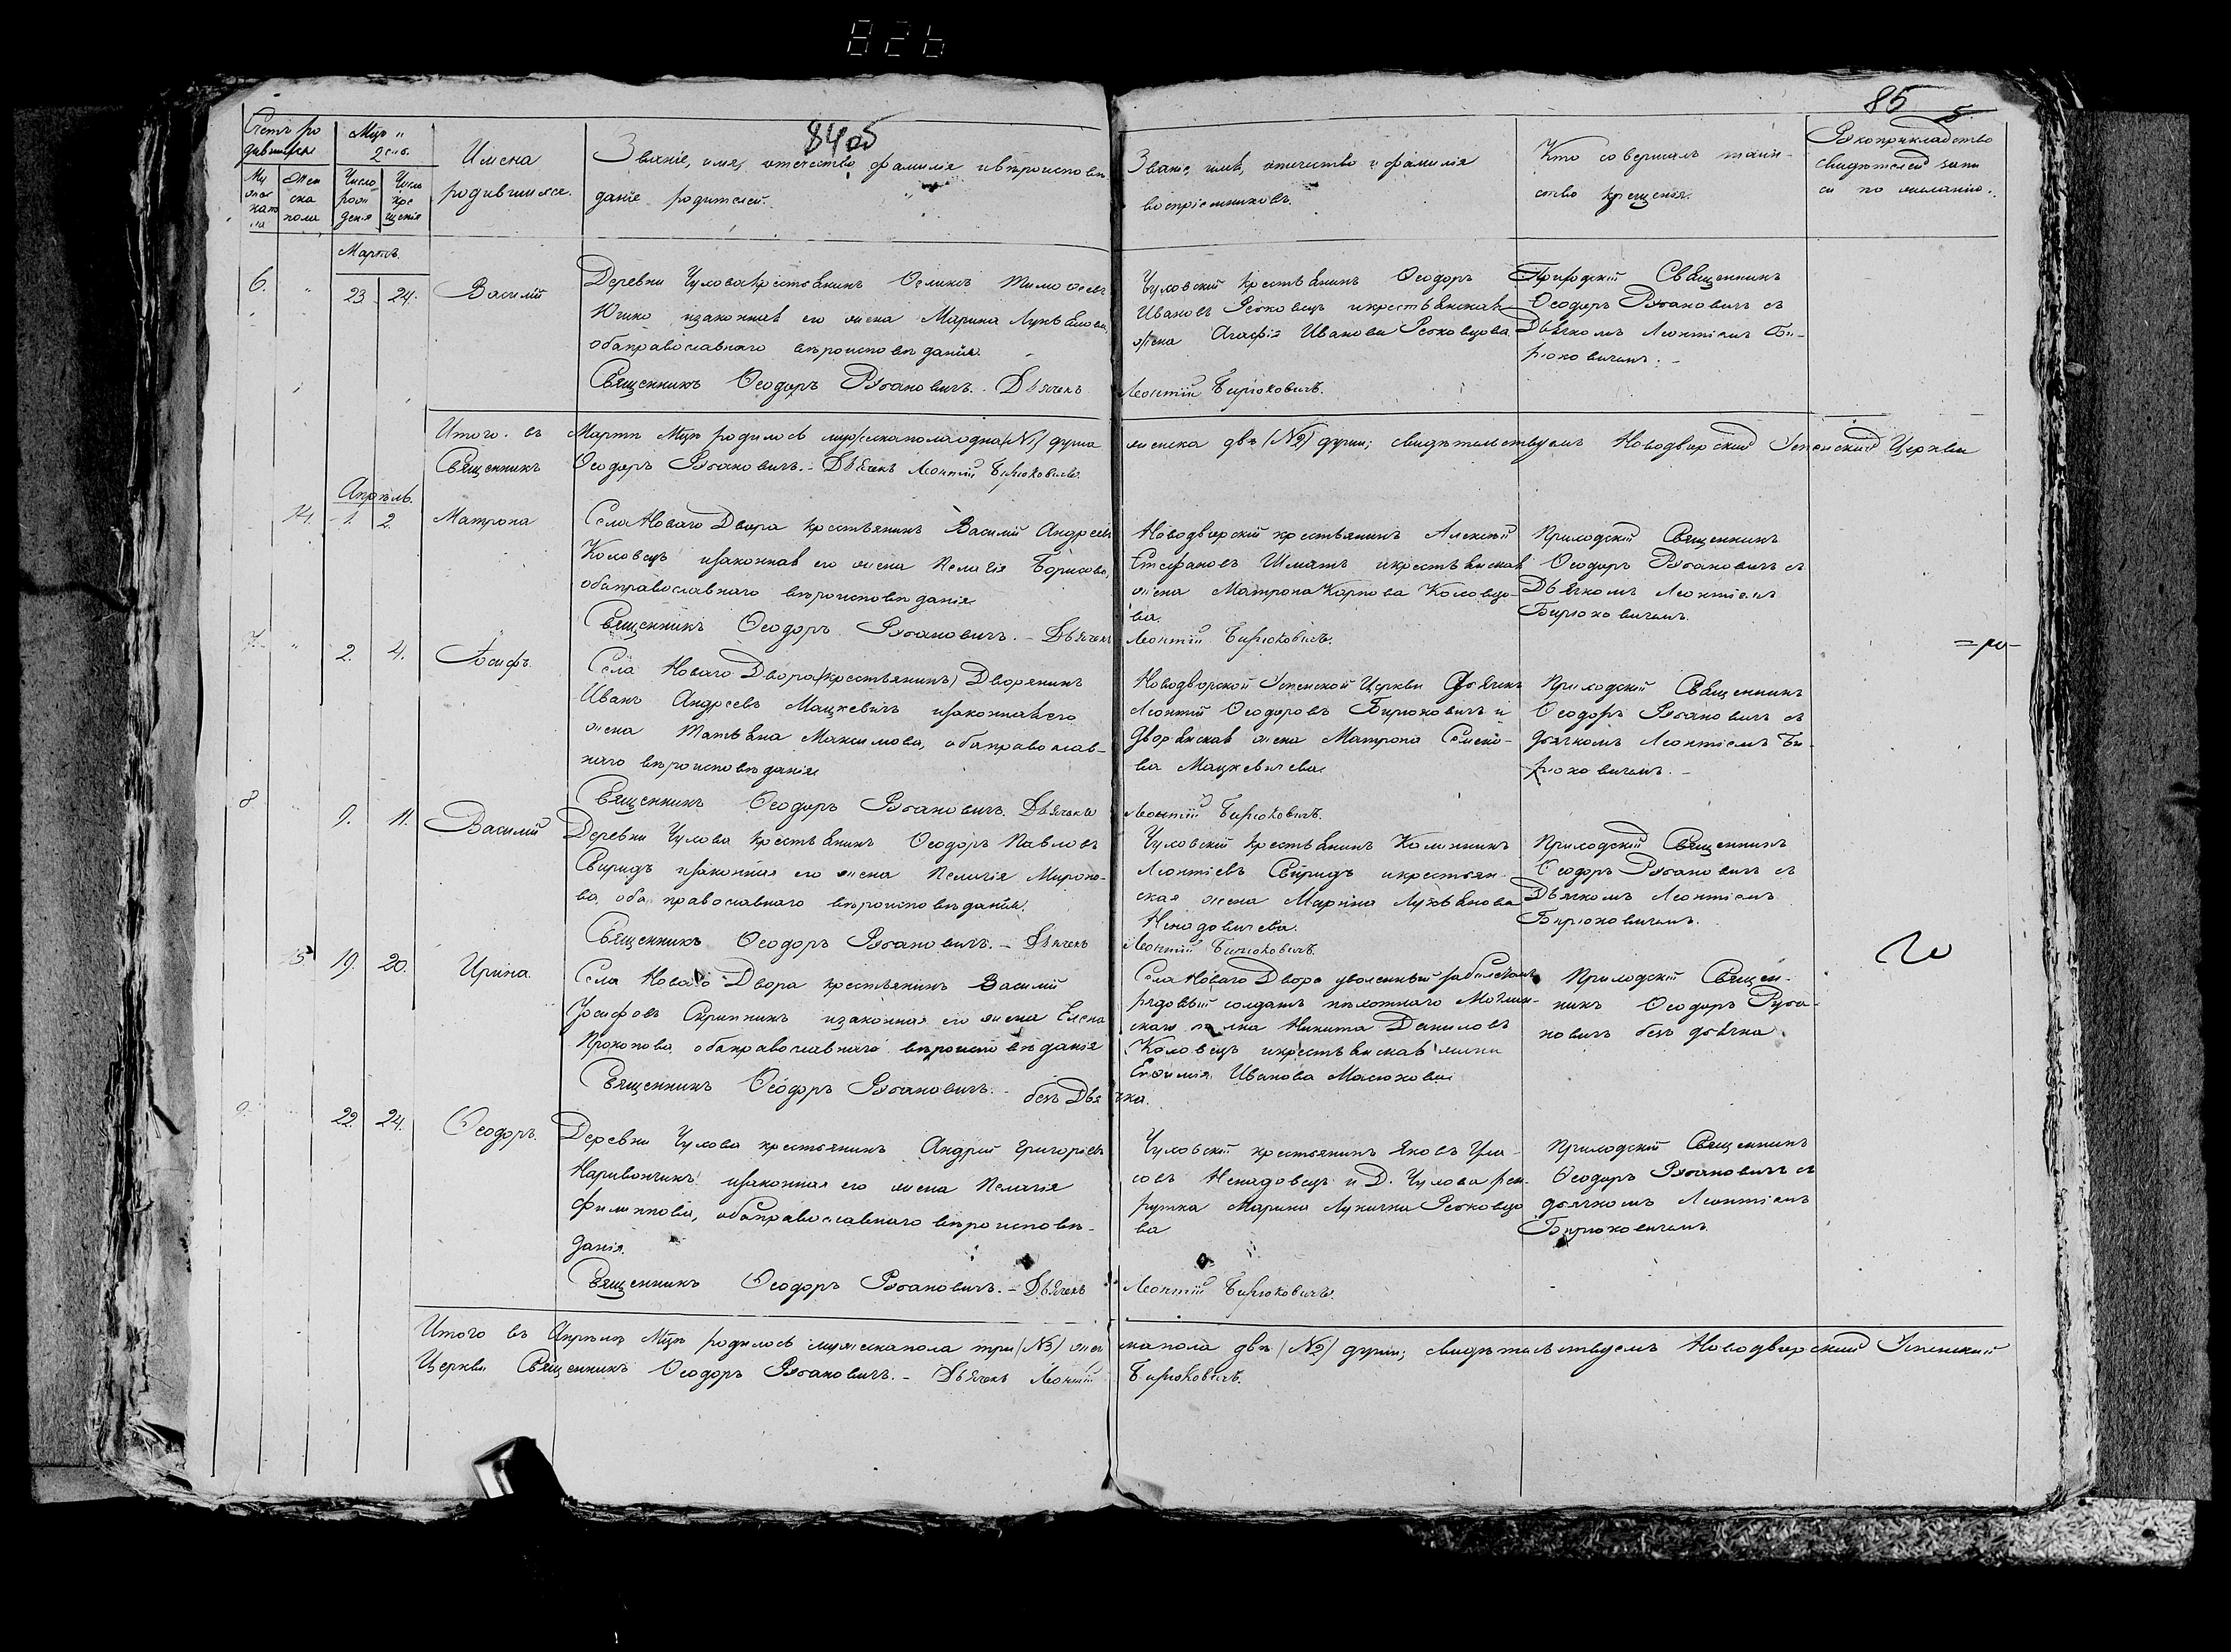 826
84 об
85
Счетъ ро
дившихся
Мцъ и
день
Имена
родившихся.
Званіе, имя, отечество, фамилія и вѣроисповѣ
даніе родителей.
Званіе, имя, отечество и фамилія
воспріемниковъ.
Кто совершалъ таин-
ство крещенія.
Рукоприкладство
свидѣтелей запи
си по желанію.
Му
жес
каго
Жен
ска
пола
Число
рож
денія
Число
кре
щенія
Мартъ.
6. " 23 24. Василій
Деревни Чулова крестьянинъ Феликсъ Тимофеевъ
Юхно и законная его жена Марина Лукьянова,
оба православнаго вѣроисповѣданія.
Священникъ Ѳеодоръ Рубановичъ. - Дьячекъ
Чуловскій крестьянинъ Ѳеодоръ
Ивановъ и крестьянская
жена Агафія Иванова
Леонтій Бирюковичъ.
Приходскій Священникъ
Ѳеодоръ Рубановичъ съ
Дьячкомъ Леонтіемъ Би-
рюковичемъ. -
Итого въ Мартѣ Мцѣ родилось мужеска пола одна (№1) душа
женска двѣ (№2) души; свидѣтельствуемъ Новодворской Успенской Церкви
Священникъ Ѳеодоръ Рубановичъ. - Дьячекъ Леонтій Бирюковичъ.
Апрѣль.
14. 1. 2. Матрона
Села Новаго Двора крестьянинъ Василій Андреевъ
Коловецъ и законная его жена Пелагія Борисова,
оба православнаго вѣроисповѣданія
Священникъ Ѳеодоръ Рубановичъ. - Дьячекъ
Новодворскій крестьянинъ Алексѣй
Стефановъ и крестьянская
жена Матрона Карпова Коловцо-
ва.
Леонтій Бирюковичъ.
Приходскій Священникъ
Ѳеодоръ Рубановичъ съ
Дьячкомъ Леонтіемъ
Бирюковичемъ.
7. " 2. 4. Іосифъ.
Села Новаго Двора (крестьянинъ) Дворянинъ
Иванъ Андреевъ Мацкевичъ и законная его
жена Татьяна Максимова, оба православ-
наго вѣроисповѣданія
Священникъ Ѳеодоръ Рубановичъ. Дьячекъ
Новодворской Успенской Церкви Дьячекъ
Леонтій Ѳеодоровъ Бирюковичъ и
дворянская жена Матрона Семено-
ва Мацкевичева.
Леонтій Бирюковичъ.
Приходскій Священникъ
Ѳеодоръ Рубановичъ съ
дьячкомъ Леонтіемъ Би-
рюковичемъ. -
8 9. 11. Василій
Деревни Чулова крестьянинъ Ѳеодоръ Павловъ
Свиридъ и законная его жена Пелагія Мироно-
ва, оба православнаго вѣроисповѣданія.
Священникъ Ѳеодоръ Рубановичъ. - Дьячекъ
Чуловскій крестьянинъ Калинникъ
Леонтіевъ Свиридъ и крестьян-
ская жена Марина Лукьянова
Ненадовичева.
Леонтій Бирюковичъ.
Приходскій Священникъ
Ѳеодоръ Рубановичъ съ
Дьячкомъ Леонтіемъ
Бирюковичемъ.
15. 19. 20. Ирина.
Села Новаго Двора крестьянинъ Василій
Іосифовъ Скрипникъ и законная его жена Елена
Прокопова, оба православнаго вѣроисповѣданія
Священникъ Ѳеодоръ Рубановичъ. - безъ Дья
Села Новаго Двора уволенный за билетомъ
рядовый солдатъ пѣхотнаго
скаго полка Никита Даниловъ
Коловецъ и крестьянская жена
Евфимія Иванова
чка.
Приходскій Священ-
никъ Ѳеодоръ Руба-
новичъ безъ дьячка.
9. 22. 24. Ѳеодоръ.
Деревни Чулова крестьянинъ Андрей Григорьевъ
Наривончикъ и законная его жена Пелагія
Филиппова, оба православнаго вѣроисповѣ-
данія.
Священникъ Ѳеодоръ Рубановичъ. - Дьячекъ
Чуловскій крестьянинъ Яковъ
Ненадовецъ и Д. Чулова рек-
рутка Марина
ва
Леонтій Бирюковичъ.
Приходскій Священникъ
Ѳеодоръ Рубановичъ съ
дьячкомъ Леонтіемъ
Бирюковичемъ.
Итого въ Апрѣлѣ Мцѣ родилось мужеска пола три (№3) жен
ска пола двѣ (№2) души; свидѣтельствуемъ Новодворской Успенской
Церкви Священникъ Ѳеодоръ Рубановичъ. - Дьячекъ Леонтій
Бирюковичъ.